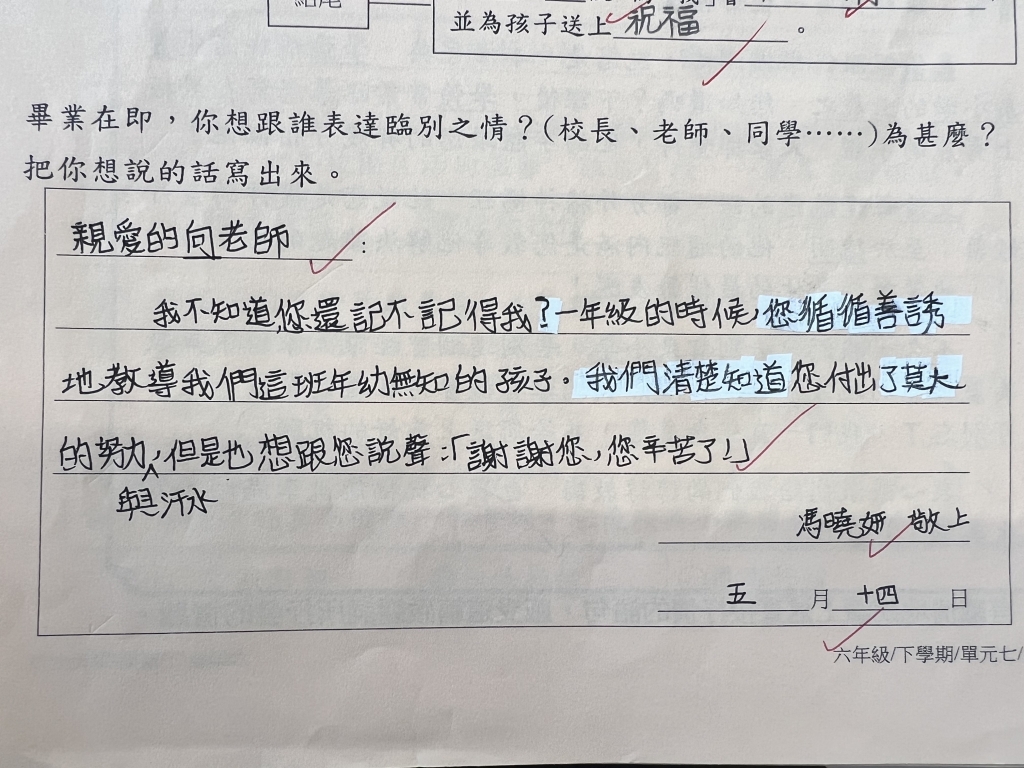 結尾
並為孩子送上祝福。
畢業在即，你想跟誰表達臨別之情？(校長、老師、同學……)為甚麼？
把你想說的話寫出來。
親愛的向老師：
我不知道您還記不記得我？一年級的時候，您循循善誘
地教導我們這班年幼無知的孩子。我們清楚知道您付出了莫大
的努力，但是也想跟您說聲：「謝謝您，您辛苦了！」
與汗水
馮曉妍 敬上
五月十四日
六年級/下學期/單元七/